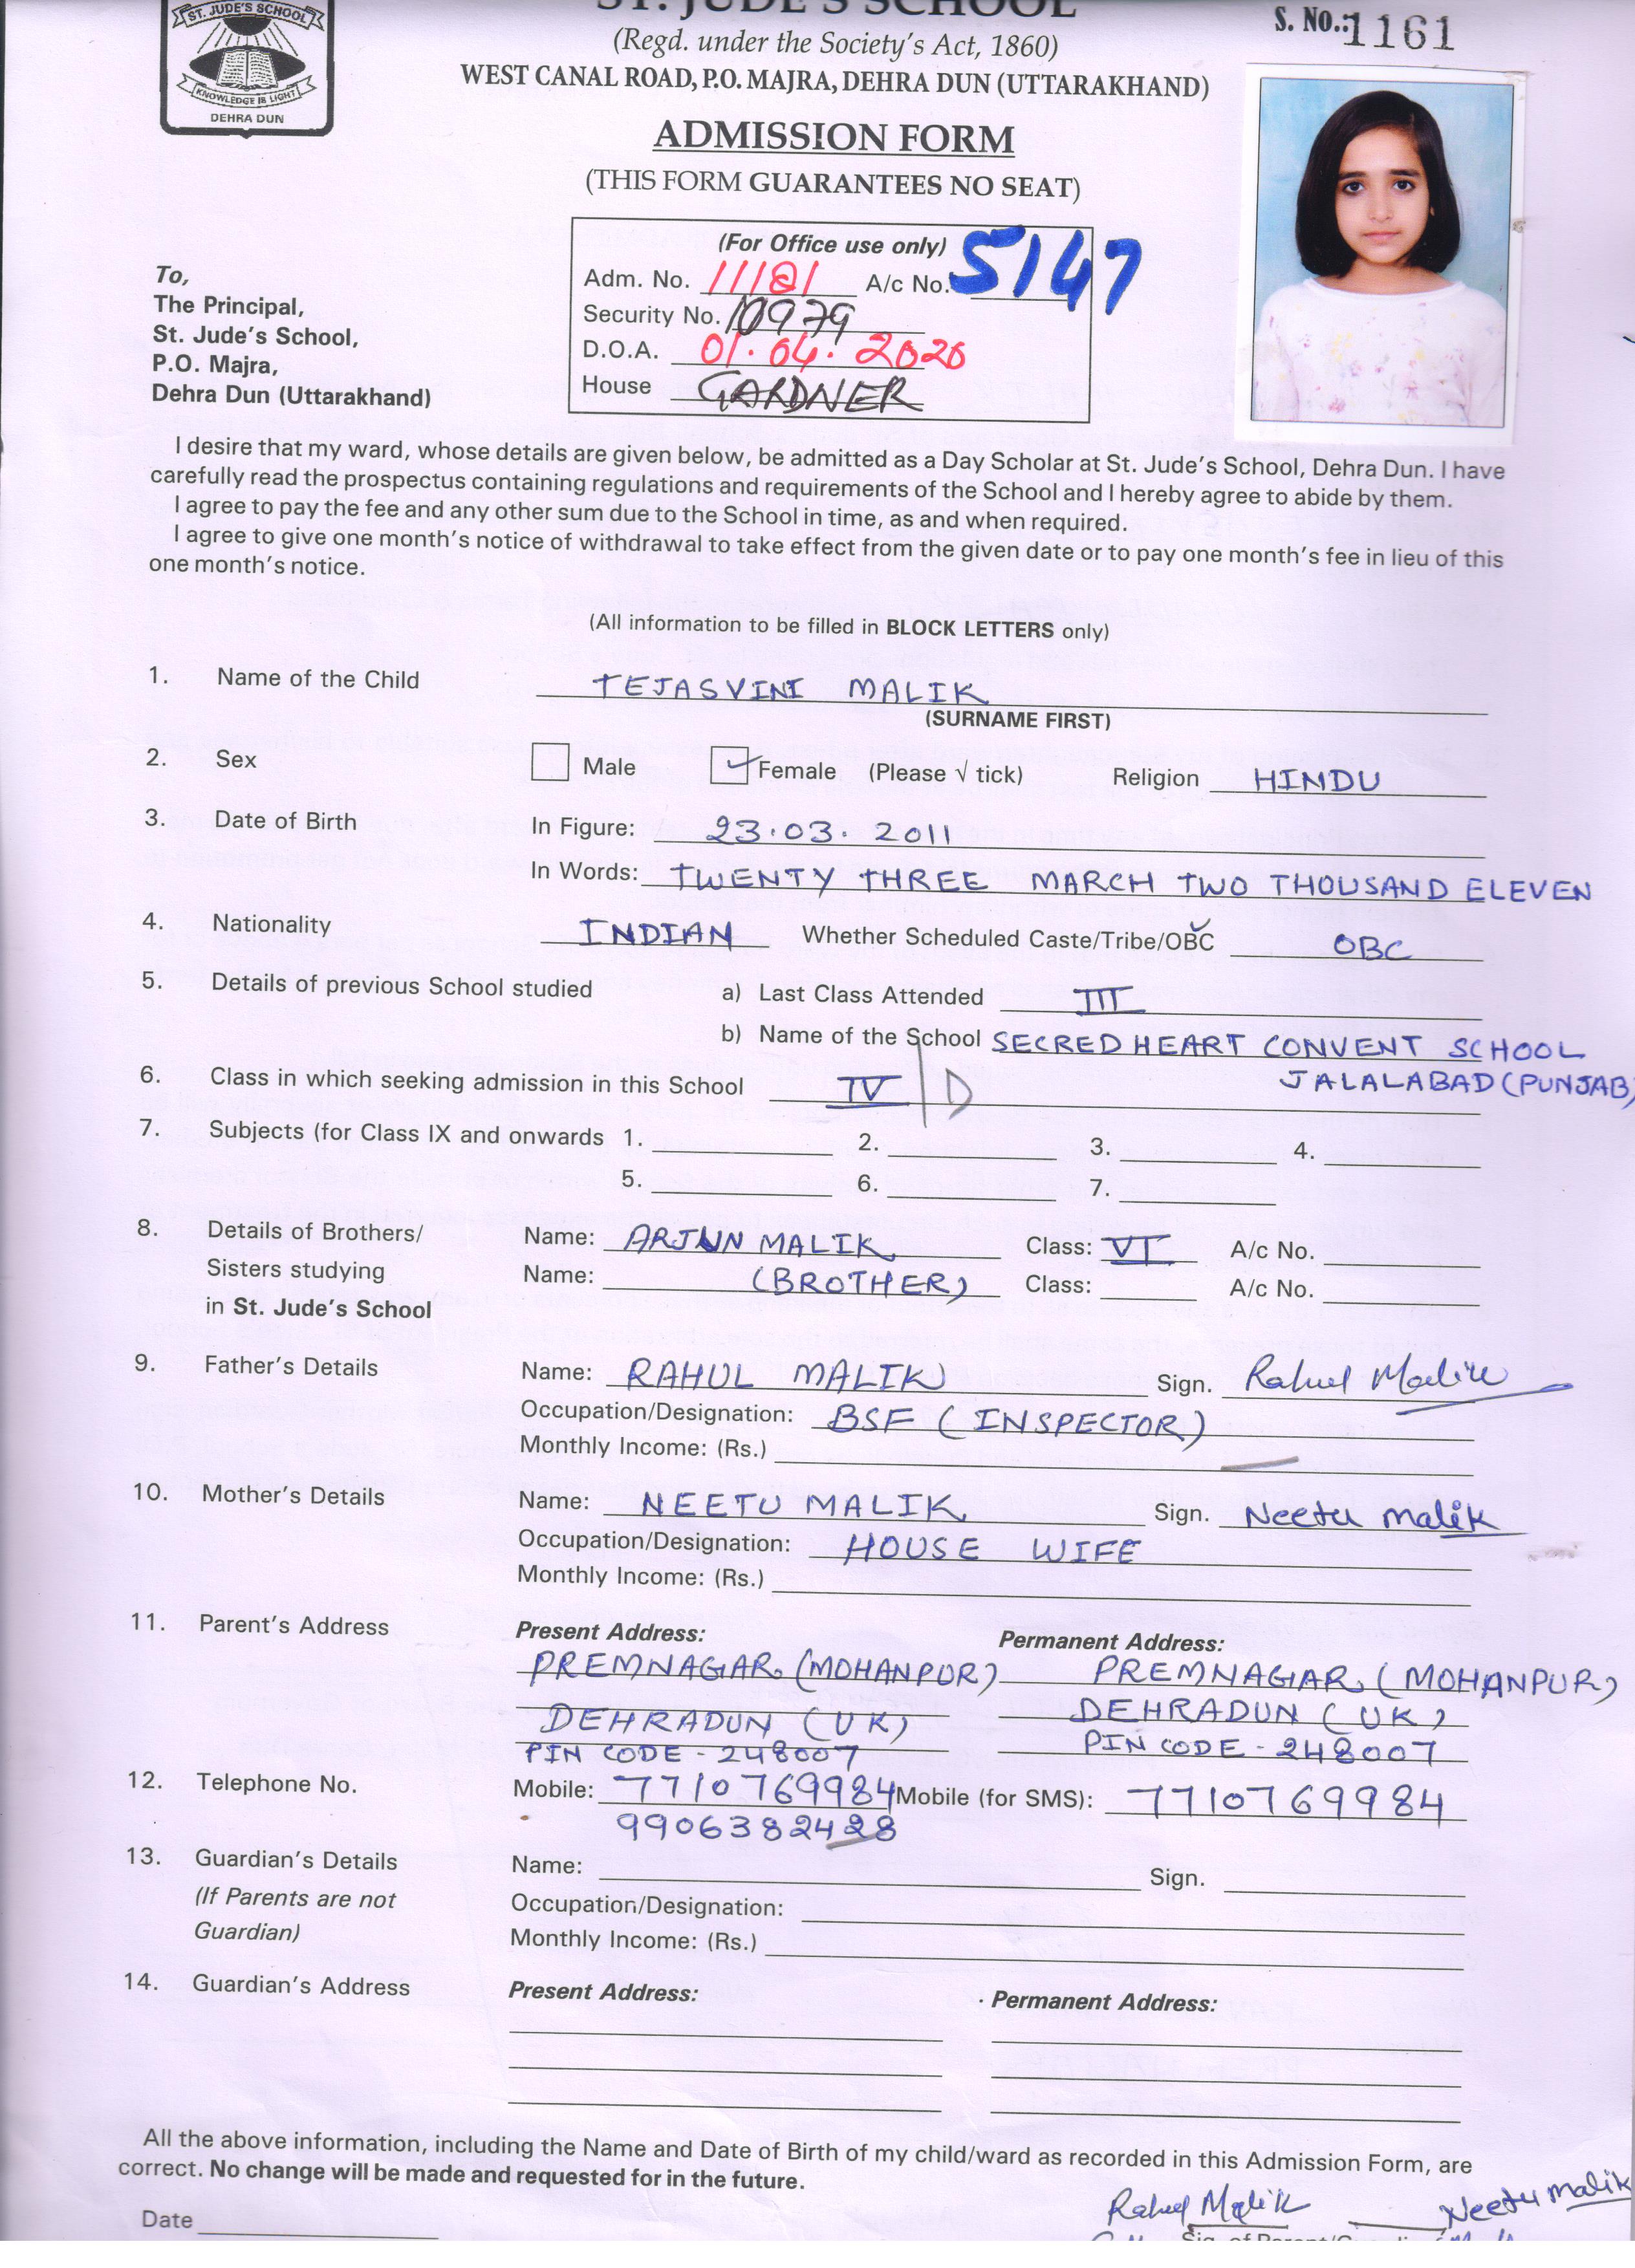 ST. JUDE'S SCHOOL
KNOWLEDGE IS LIGHT
DEHRA DUN
ST. JUDE'S SCHOOL
(Regd. under the Society's Act, 1860)
WEST CANAL ROAD, P.O. MAJRA, DEHRA DUN (UTTARAKHAND)
S. NO.: 1161
ADMISSION FORM
(THIS FORM GUARANTEES NO SEAT)
(For Office use only)
Adm. No. 11181 A/c No. 5147
Security No. 10979
D.O.A. 01.04.2020
House GARDNER
To,
The Principal,
St. Jude's School,
P.O. Majra,
Dehra Dun (Uttarakhand)
I desire that my ward, whose details are given below, be admitted as a Day Scholar at St. Jude's School, Dehra Dun. I have
carefully read the prospectus containing regulations and requirements of the School and I hereby agree to abide by them.
I agree to pay the fee and any other sum due to the School in time, as and when required.
I agree to give one month's notice of withdrawal to take effect from the given date or to pay one month's fee in lieu of this
one month's notice.
(All information to be filled in BLOCK LETTERS only)
1. Name of the Child TEJASVINI MALIK
(SURNAME FIRST)
2. Sex Male Female (Please √ tick) Religion HINDU
3. Date of Birth In Figure: 23.03.2011
In Words: TWENTY THREE MARCH TWO THOUSAND ELEVEN
4. Nationality INDIAN Whether Scheduled Caste/Tribe/OBC OBC
5. Details of previous School studied a) Last Class Attended III
b) Name of the School SECRED HEART CONVENT SCHOOL
JALALABAD (PUNJAB)
6. Class in which seeking admission in this School IV / D
7. Subjects (for Class IX and onwards 1. 2. 3. 4.
5. 6. 7.
8. Details of Brothers/ Name: ARJUN MALIK Class: VI A/c No.
Sisters studying Name: (BROTHER) Class: A/c No.
in St. Jude's School
9. Father's Details Name: RAHUL MALIK Sign. Rahul Malik
Occupation/Designation: BSF (INSPECTOR)
Monthly Income: (Rs.)
10. Mother's Details Name: NEETU MALIK Sign. Neetu Malik
Occupation/Designation: HOUSE WIFE
Monthly Income: (Rs.)
11. Parent's Address Present Address: Permanent Address:
PREMNAGAR, (MOHANPUR) PREMNAGAR, (MOHANPUR)
DEHRADUN (UK) DEHRADUN (UK)
PIN CODE - 248007 PIN CODE - 248007
12. Telephone No. Mobile: 7710769984 Mobile (for SMS): 7710769984
9906382428
13. Guardian's Details Name: Sign.
(If Parents are not Occupation/Designation:
Guardian) Monthly Income: (Rs.)
14. Guardian's Address Present Address: Permanent Address:
All the above information, including the Name and Date of Birth of my child/ward as recorded in this Admission Form, are
correct. No change will be made and requested for in the future.
Rahul Malik Neetu Malik
Date